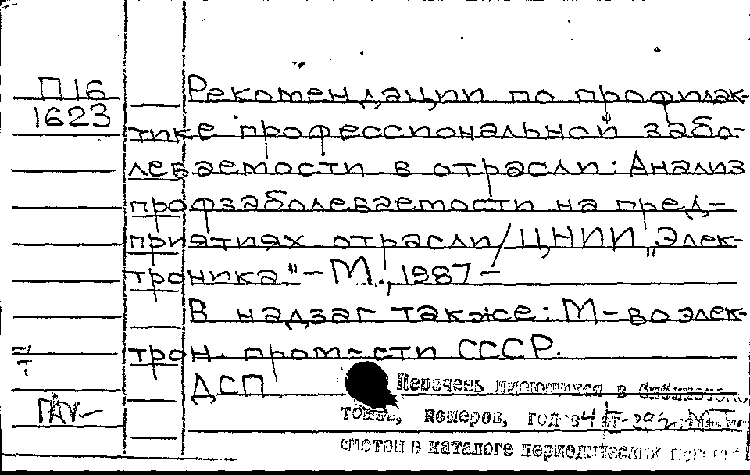 П16
1623
Рекомендации по профилак-
тике профессиональной забо-
леваемости в отрасли: Анализ
профзаболеваемости на пред-
приятиях отрасли / ЦНИИ „Элек-
троника". – М., 1987 –
В надзаг также: М-во элек-
трон. пром-сти СССР.
ДСП
Перечень имеющихся в
томов, номеров, год
смотри в каталоге периодических